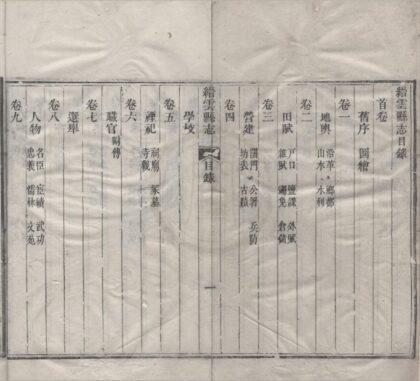 縉雲縣志目錄
首卷
舊序 圖繪
卷一
地輿 沿革 鄉都
山水 水利
卷二
田賦 戶口 鹽課 外賦
雜賦 蠲免 倉儲
卷三
營建 公署 兵防
坊表 古蹟
卷四
縉雲縣志 目錄 一
學校
卷五
祀 祠廟 冢墓
寺觀
卷六
職官 附傳
卷七
選舉
卷八
人物 名臣 宦績 武功
忠義 儒林 文苑
卷九